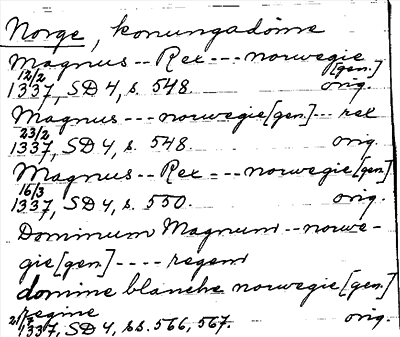 Norge, konungadöme
Magnus -- Rex --- norwegie
[gen.]
12/2
1337, SD 4, s. 548. orig.
Magnus --- norwegie [gen.] --- rex
23/2
1337, SD 4, s. 548. orig.
Magnus -- Rex --- norwegie [gen.]
16/3
1337, SD 4, s. 550. orig.
Dominum Magnum -- norwe-
gie [gen.] ---- regem
domine blanche norwegie [gen.]
regine
1337, SD 4, ss. 566, 567. orig.